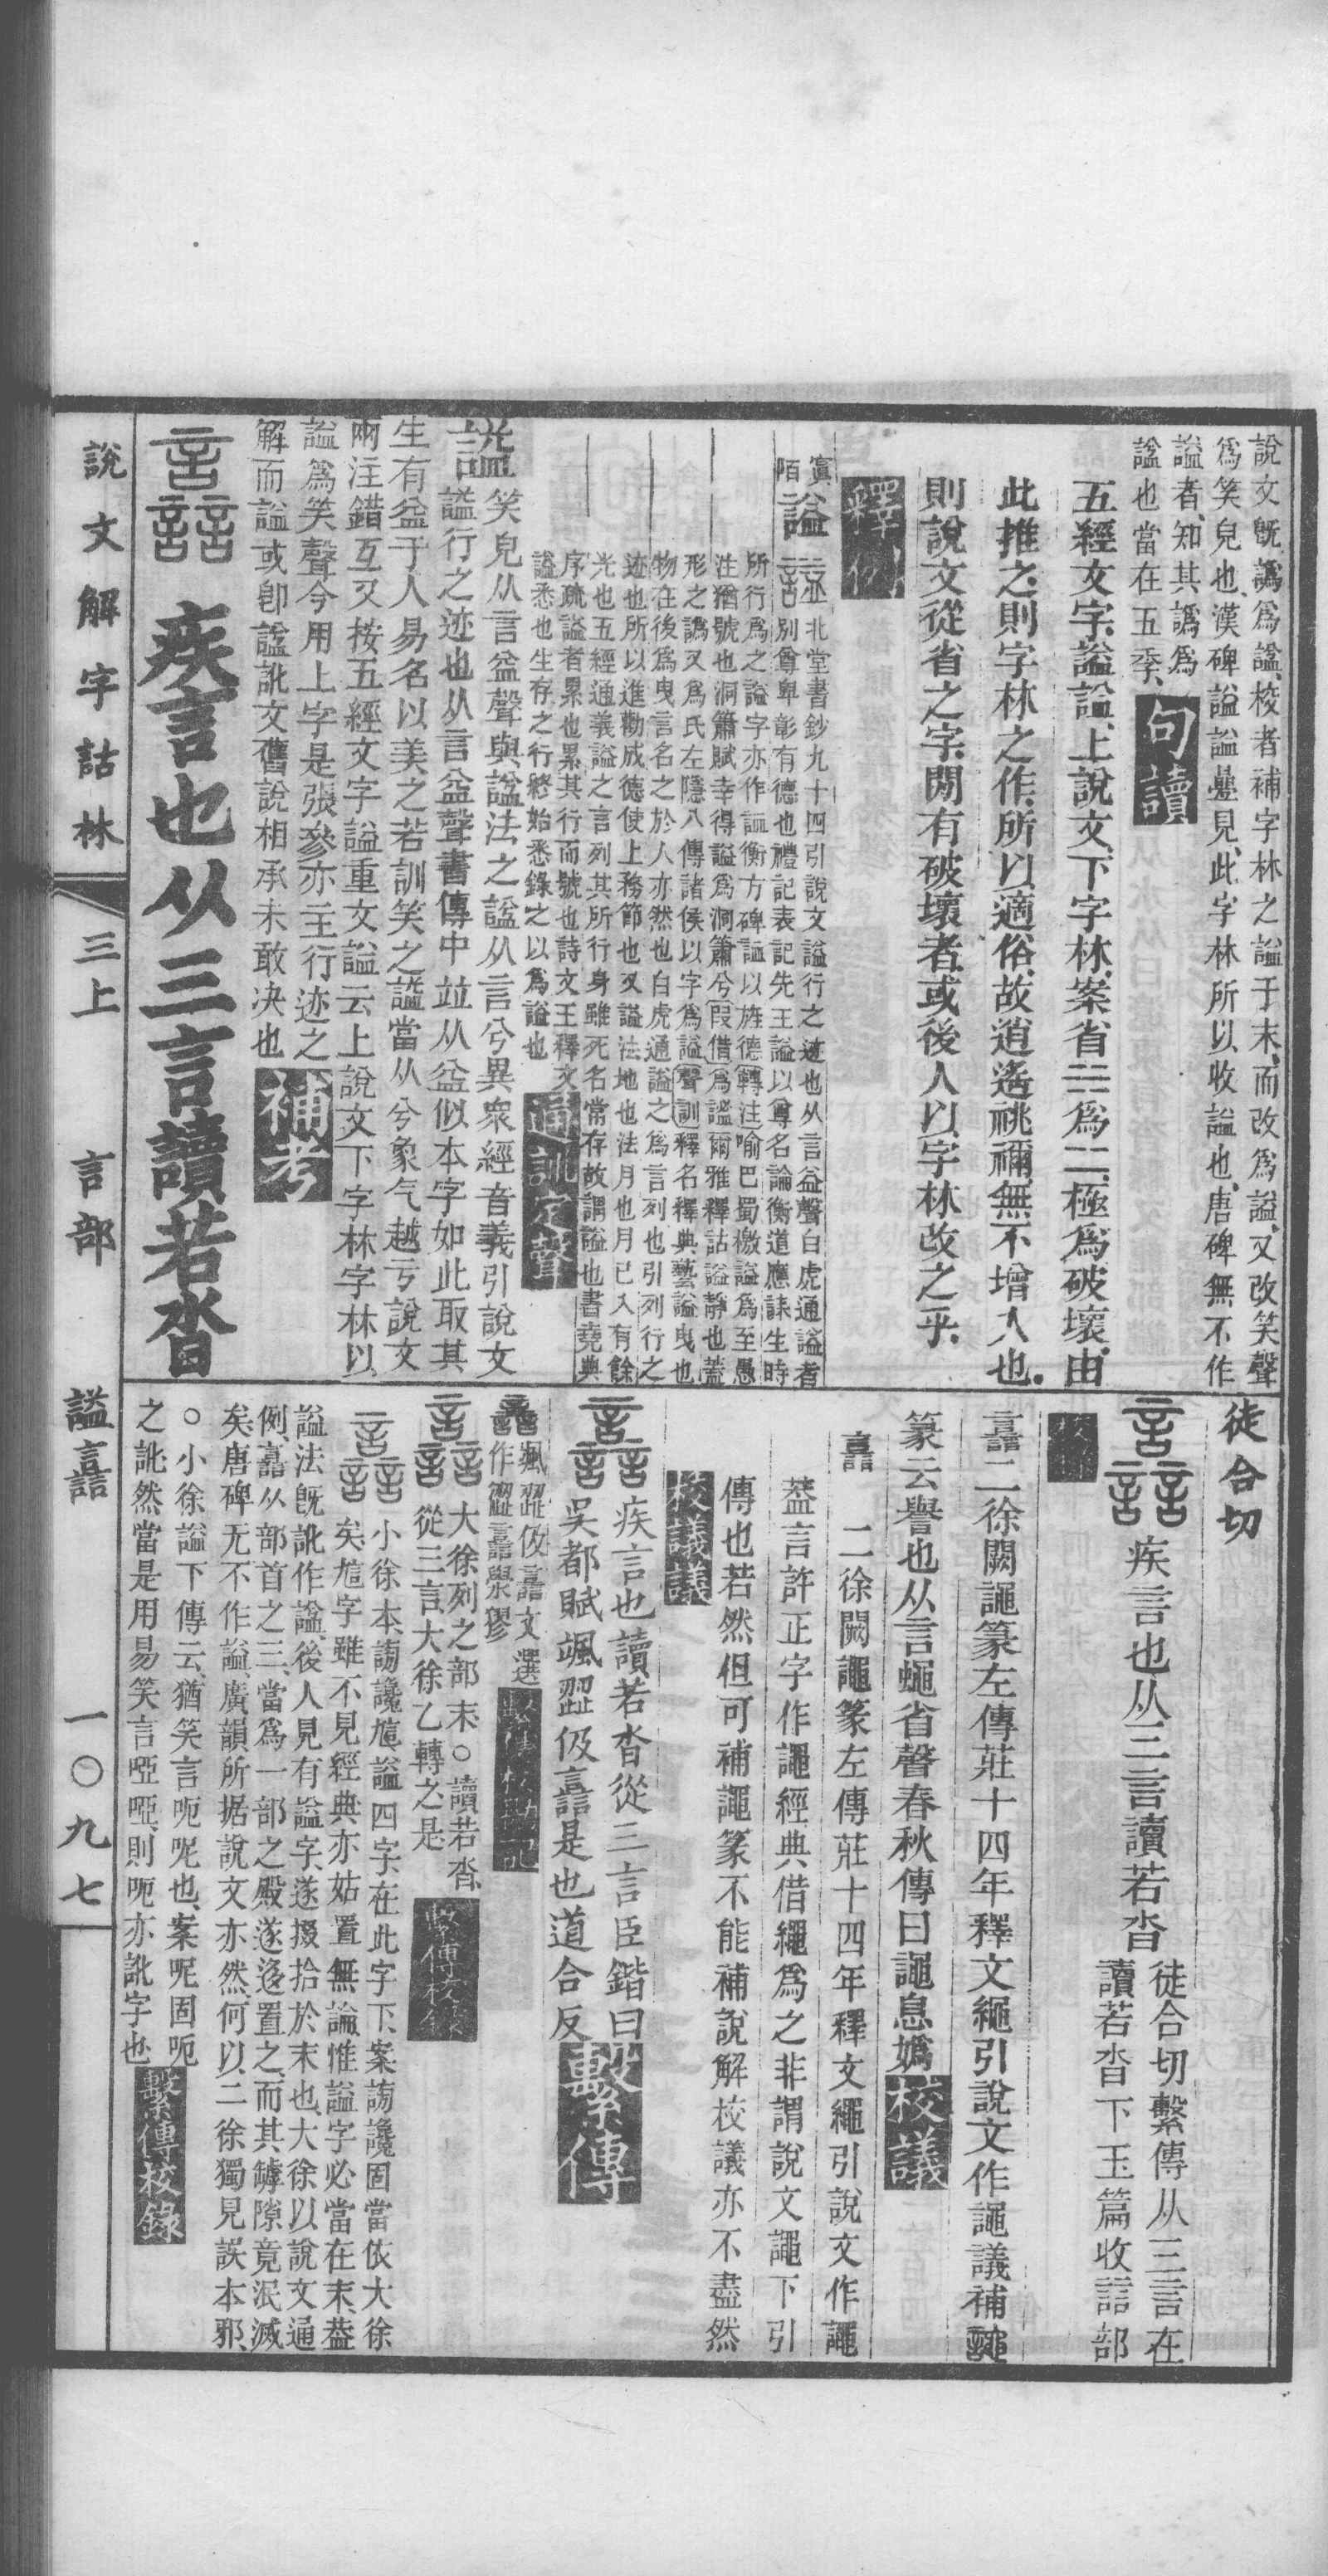 說文既譌爲諡、校者補字林之謚于末、而改爲謚、又改笑聲
爲笑皃也、漢碑謚謚疊見、此字林所以收謚也、唐碑無不作
謚者、知其譌爲
諡也當在五季、句讀
五經文字、謚謚、上說文、下字林、案省二爲二、極爲破壞、由
此推之、則字林之作、所以適俗、故逍遙祧禰、無不增入也、
則說文從省之字、閒有破壞者、或後人以字林改之乎、
釋例
謚
北堂書鈔九十四引說文謚行之迹也从言益聲白虎通謚者
別尊卑彰有德也禮記表記先王謚以尊名論衡道應誄生時
所行爲之謚字亦作謳衡方碑謳以旌德轉注喻巴蜀檄謚爲至愚
注猶號也洞簫賦幸得謚爲洞簫兮叚借爲謐爾雅釋詁謚靜也蓋
形之譌又爲氏左隱八傳諸侯以字爲謚聲訓釋名釋典藝謚曳也
物在後爲曳言名之於人亦然也白虎通謚之爲言列也引列行之
迹也所以進勸成德使上務節也又謚法地也法月也月已入有餘
光也五經通義謚之言列其所行身雖死名常存故謂謚也書堯典
序疏謚者累也累其行而號也詩文王釋文
謚悉也生存之行終始悉錄之以爲謚也
通訓定聲
謚笑皃从言益聲與諡法之諡从言兮異衆經音義引說文
謚行之迹也从言益聲書傳中並从益似本字如此取其
生有益于人易名以美之若訓笑之謚當从兮象气越亏說文
兩注錯互又按五經文字謚重文謚云上說文下字林字林以
謚爲笑聲今用上字是張參亦主行迹之
解而謚或卽諡訛文舊說相承未敢決也
補考
譶 疾言也从三言讀若沓
徒合切
譶 疾言也从三言讀若沓 徒合切繫傳从三言在
讀若沓下玉篇收誩部
校錄
譶二徐闕譝篆左傳莊十四年釋文繩引說文作譝議補譝
篆云譽也从言蠅省聲春秋傳曰譝息嬀校議
譶 二徐闕譝篆左傳莊十四年釋文繩引說文作譝
葢言許正字作譝經典借繩爲之非謂說文譝下引
傳也若然但可補譝篆不能補說解校議亦不盡然
校議議
譶 疾言也讀若沓從三言臣鍇曰
吳都賦颯澀伋譶是也道合反繫傳
譶 颯澀伋譶文選
作澀譶㵗㺒
繫傳校勘記
譶 大徐列之部末○讀若沓、
從三言、大徐乙轉之、是、
繫傳校錄
譶 小徐本、詢讒訄、謚四字、在此字下、案詢讒固當依大徐
矣、訄字雖不見經典、亦姑置無論、惟謚字必當在末、葢
謚法旣訛作諡、後人見有謚字、遂掇拾於末也、大徐以說文通
例、譶从部首之三、當爲一部之殿、遂迻置之、而其罅隙竟泯滅
矣、唐碑无不作謚、廣韻所据說文亦然、何以二徐獨見誤本邪、
○小徐謚下傳云、猶笑言呃呢也、案呢固呃
之訛、然當是用易笑言啞啞、則呃亦訛字也、
繫傳校錄
說文解字詁林
三上
言部
謚譶
一〇九七